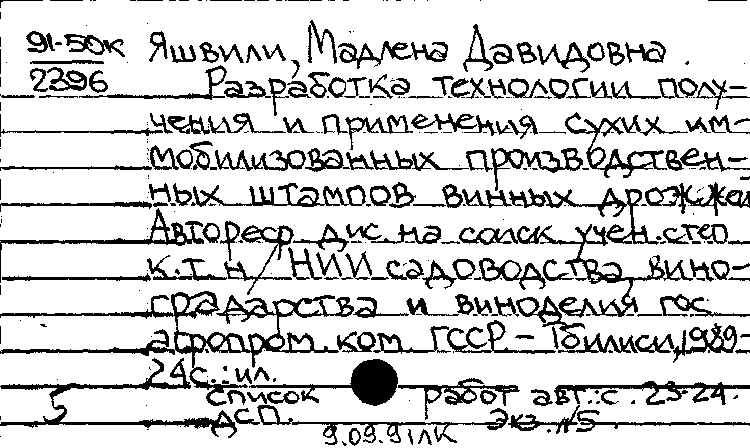 91-50к Яшвили, Мадлена Давидовна.
2396 Разработка технологии полу-
чения и применения сухих им-
мобилизованных производствен-
ных штампов винных дрожжей
Автореф дис. на соиск учен. степ
к.т.н / НИИ садоводства, вино-
градарства и виноделия гос
агропром. ком. ГССР - Тбилиси, 1989-
24 с.: ил.
список работ авт.: с. 23-24.
5 ДСП. Экз. №5.
9.09.91 ЛК